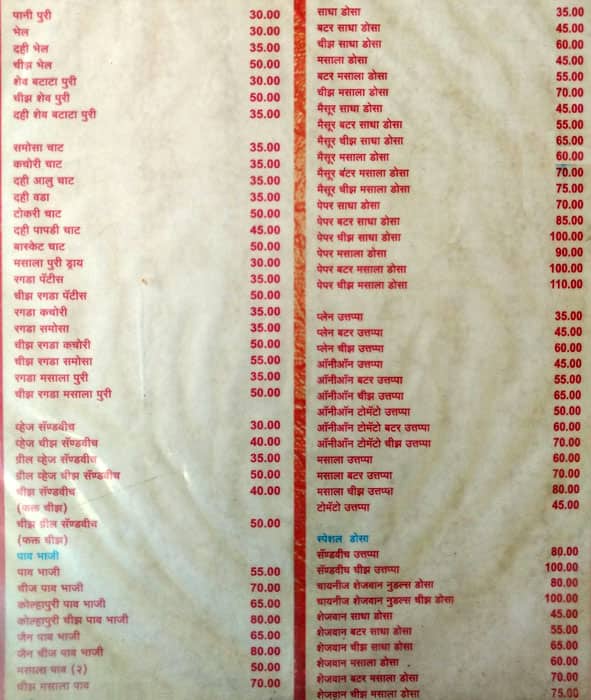 पानी पुरी 30.00
भेल 30.00
दही भेल 35.00
चीझ भेल 50.00
शेव बटाटा पुरी 30.00
चीझ शेव पुरी 50.00
दही शेव बटाटा पुरी 35.00
समोसा चाट 35.00
कचोरी चाट 35.00
दही आलु चाट 35.00
दही वडा 35.00
टोकरी चाट 50.00
दही पापडी चाट 45.00
बास्केट चाट 50.00
मसाला पुरी ड्राय 30.00
रगडा पॅटीस 35.00
चीझ रगडा पॅटीस 50.00
रगडा कचोरी 35.00
रगडा समोसा 35.00
चीझ रगडा कचोरी 50.00
चीझ रगडा समोसा 55.00
रगडा मसाला पुरी 35.00
चीझ रगडा मसाला पुरी 50.00
व्हेज सॅण्डवीच 30.00
व्हेज चीझ सॅण्डवीच 40.00
ग्रील व्हेज सॅण्डवीच 35.00
ग्रील व्हेज चीझ सॅण्डवीच 50.00
चीझ सॅण्डवीच 40.00
(फक्त चीझ)
चीझ ग्रील सॅण्डवीच 50.00
(फक्त चीझ)
पाव भाजी
पाव भाजी 55.00
चीज पाव भाजी 70.00
कोल्हापुरी पाव भाजी 65.00
कोल्हापुरी चीझ पाव भाजी 80.00
जैन पाव भाजी 65.00
जैन चीज पाव भाजी 80.00
मसाला पाव (२) 50.00
चीझ मसाला पाव 70.00
साधा डोसा 35.00
बटर साधा डोसा 45.00
चीझ साधा डोसा 60.00
मसाला डोसा 45.00
बटर मसाला डोसा 55.00
चीझ मसाला डोसा 70.00
मैसूर साधा डोसा 45.00
मैसूर बटर साधा डोसा 55.00
मैसूर चीझ साधा डोसा 65.00
मैसूर मसाला डोसा 60.00
मैसूर बटर मसाला डोसा 70.00
मैसूर चीझ मसाला डोसा 75.00
पेपर साधा डोसा 70.00
पेपर बटर साधा डोसा 85.00
पेपर चीझ साधा डोसा 100.00
पेपर मसाला डोसा 90.00
पेपर बटर मसाला डोसा 100.00
पेपर चीझ मसाला डोसा 110.00
प्लेन उत्तप्पा 35.00
प्लेन बटर उत्तप्पा 45.00
प्लेन चीझ उत्तप्पा 60.00
ऑनीऑन उत्तप्पा 45.00
ऑनीऑन बटर उत्तप्पा 55.00
ऑनीऑन चीझ उत्तप्पा 65.00
ऑनीऑन टोमॅटो उत्तप्पा 50.00
ऑनीऑन टोमॅटो बटर उत्तप्पा 60.00
ऑनीऑन टोमॅटो चीझ उत्तप्पा 70.00
मसाला उत्तप्पा 60.00
मसाला बटर उत्तप्पा 70.00
मसाला चीझ उत्तप्पा 80.00
टोमॅटो उत्तप्पा 45.00
स्पेशल डोसा
सॅण्डवीच उत्तप्पा 80.00
सॅण्डवीच चीझ उत्तप्पा 100.00
चायनीज शेजवान नुडल्स डोसा 80.00
चायनीज शेजवान नुडल्स चीझ डोसा 100.00
शेजवान साधा डोसा 45.00
शेजवान बटर साधा डोसा 55.00
शेजवान चीझ साधा डोसा 65.00
शेजवान मसाला डोसा 60.00
शेजवान बटर मसाला डोसा 70.00
शेजवान चीझ मसाला डोसा 75.00